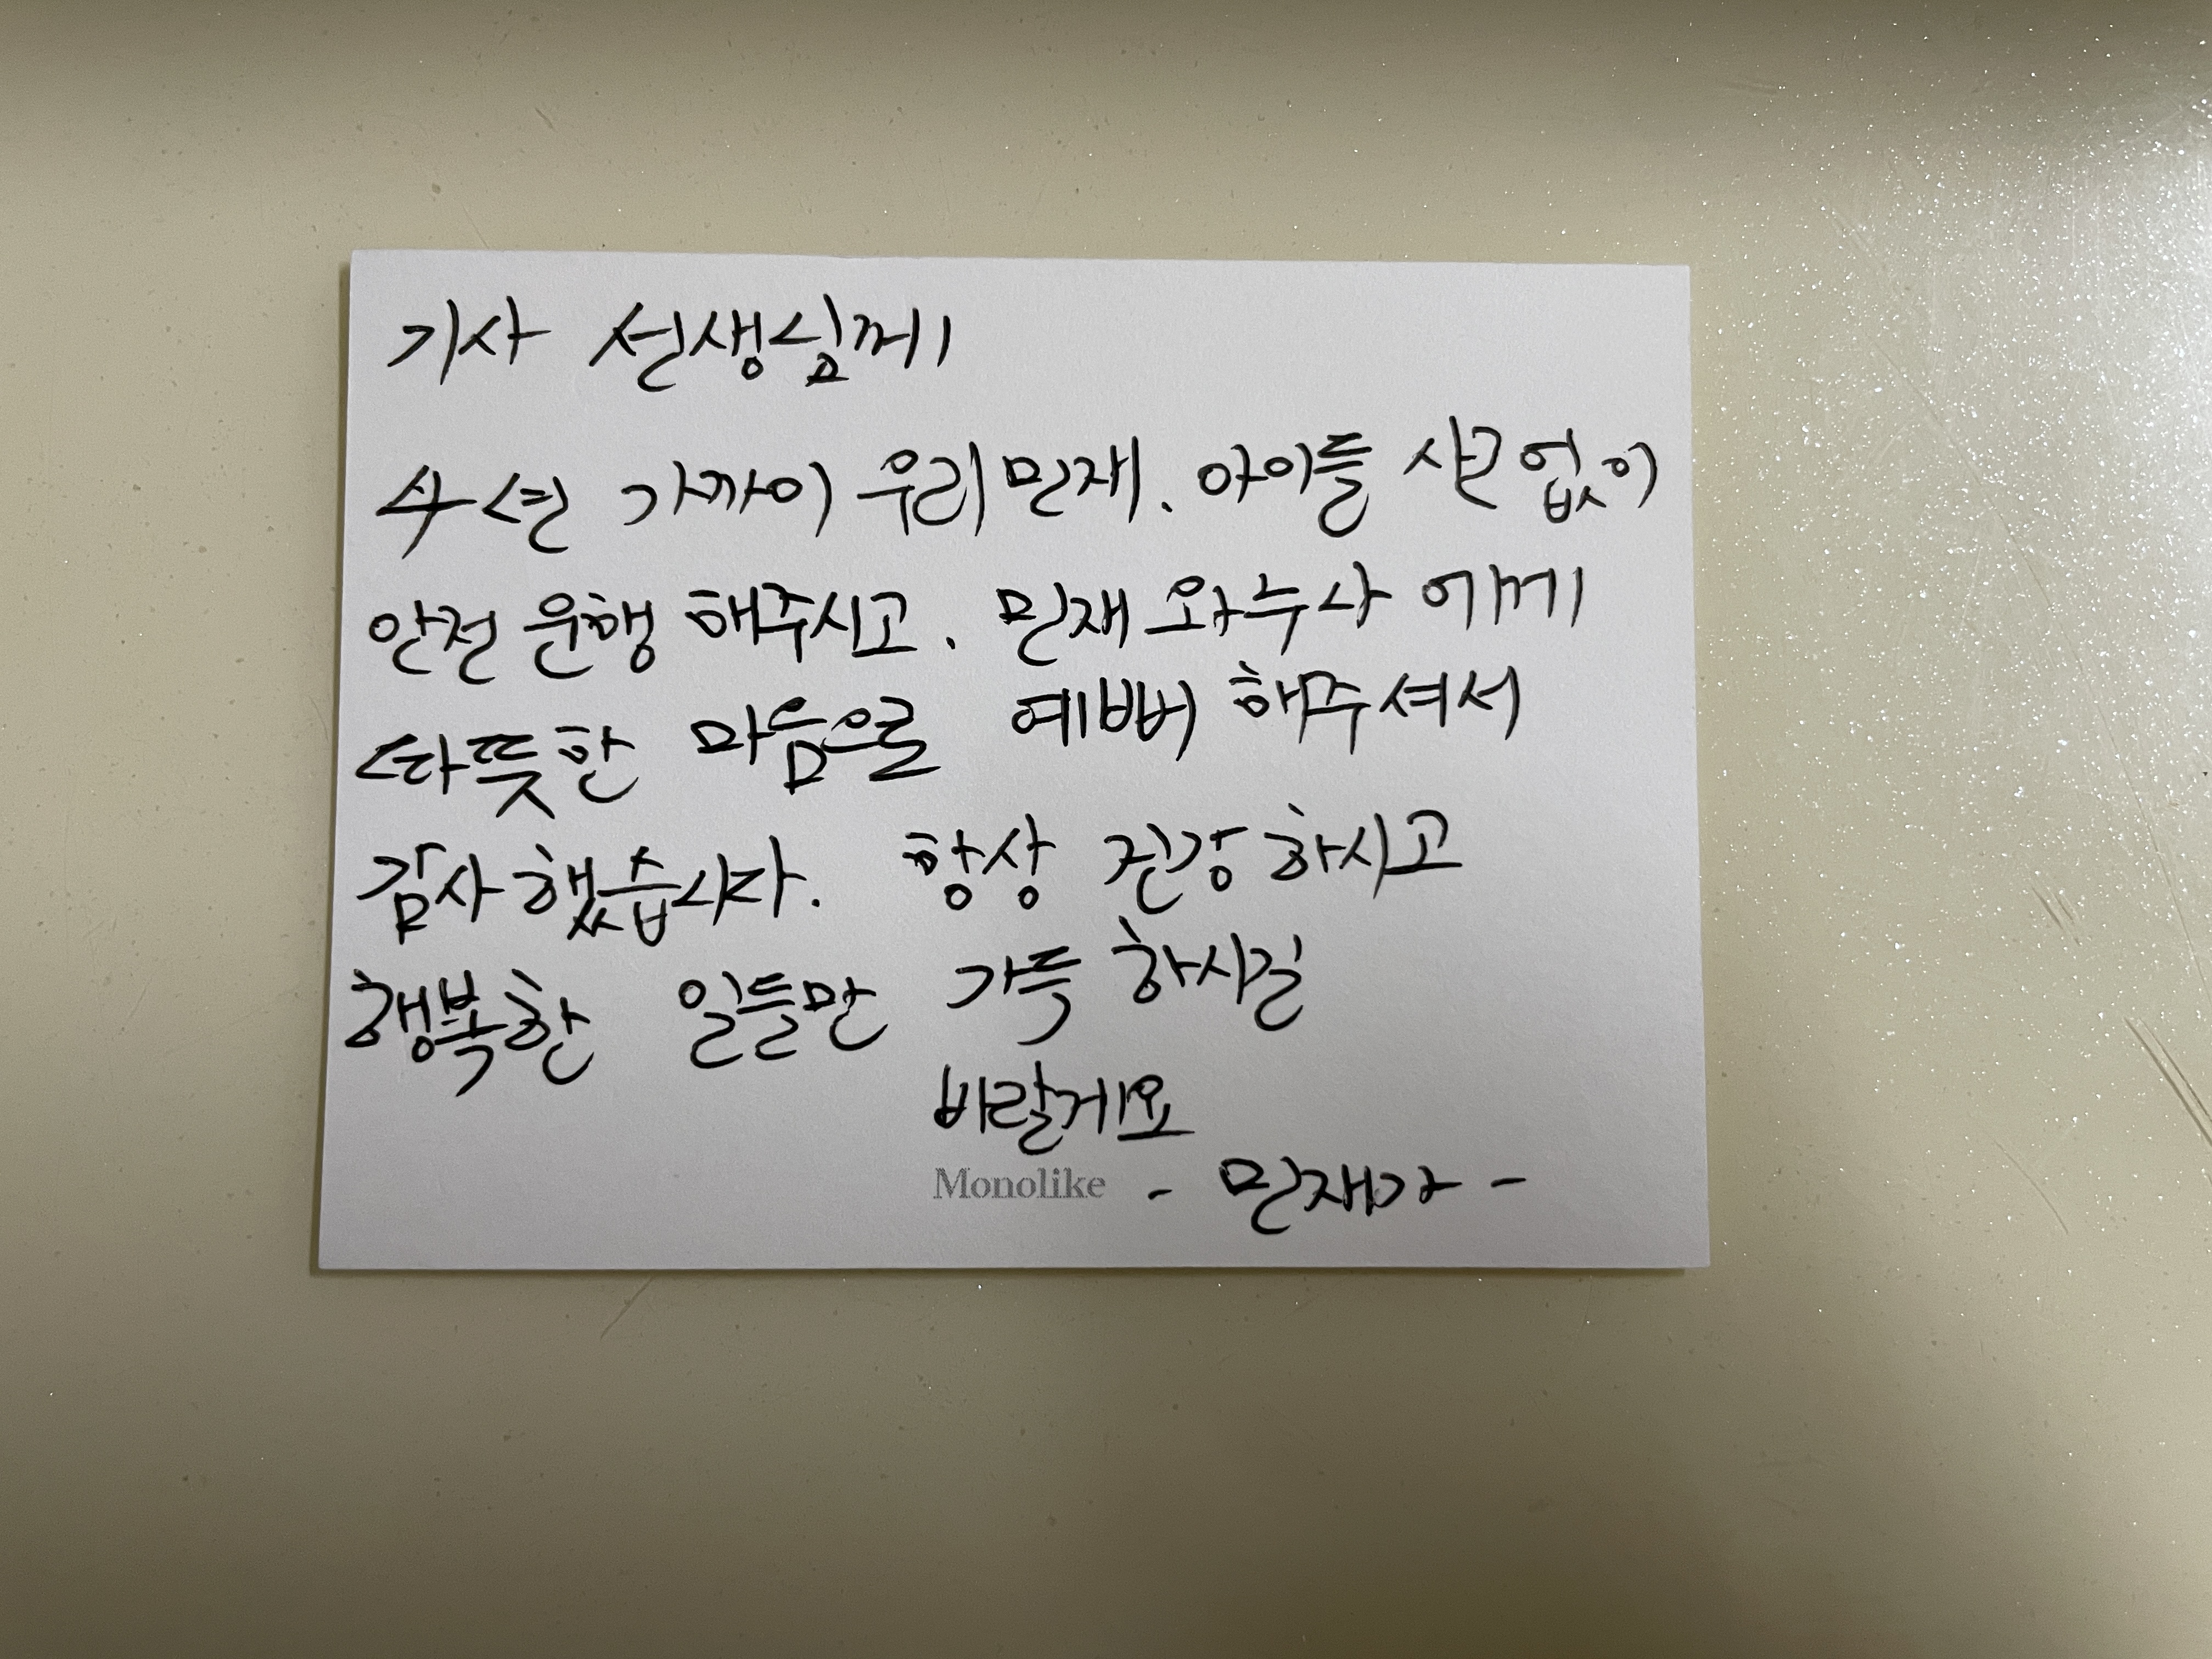 기사 선생님께
수년 가까이 우리민재. 아이들 사고없이
안전 운행 해주시고. 민재 와누나 에게
따뜻한 마음으로 예뻐 해주셔서
감사했습니다. 항상 건강하시고
행복한 일들만 가득 하시길
바랄게요
Monolike - 민재가 -